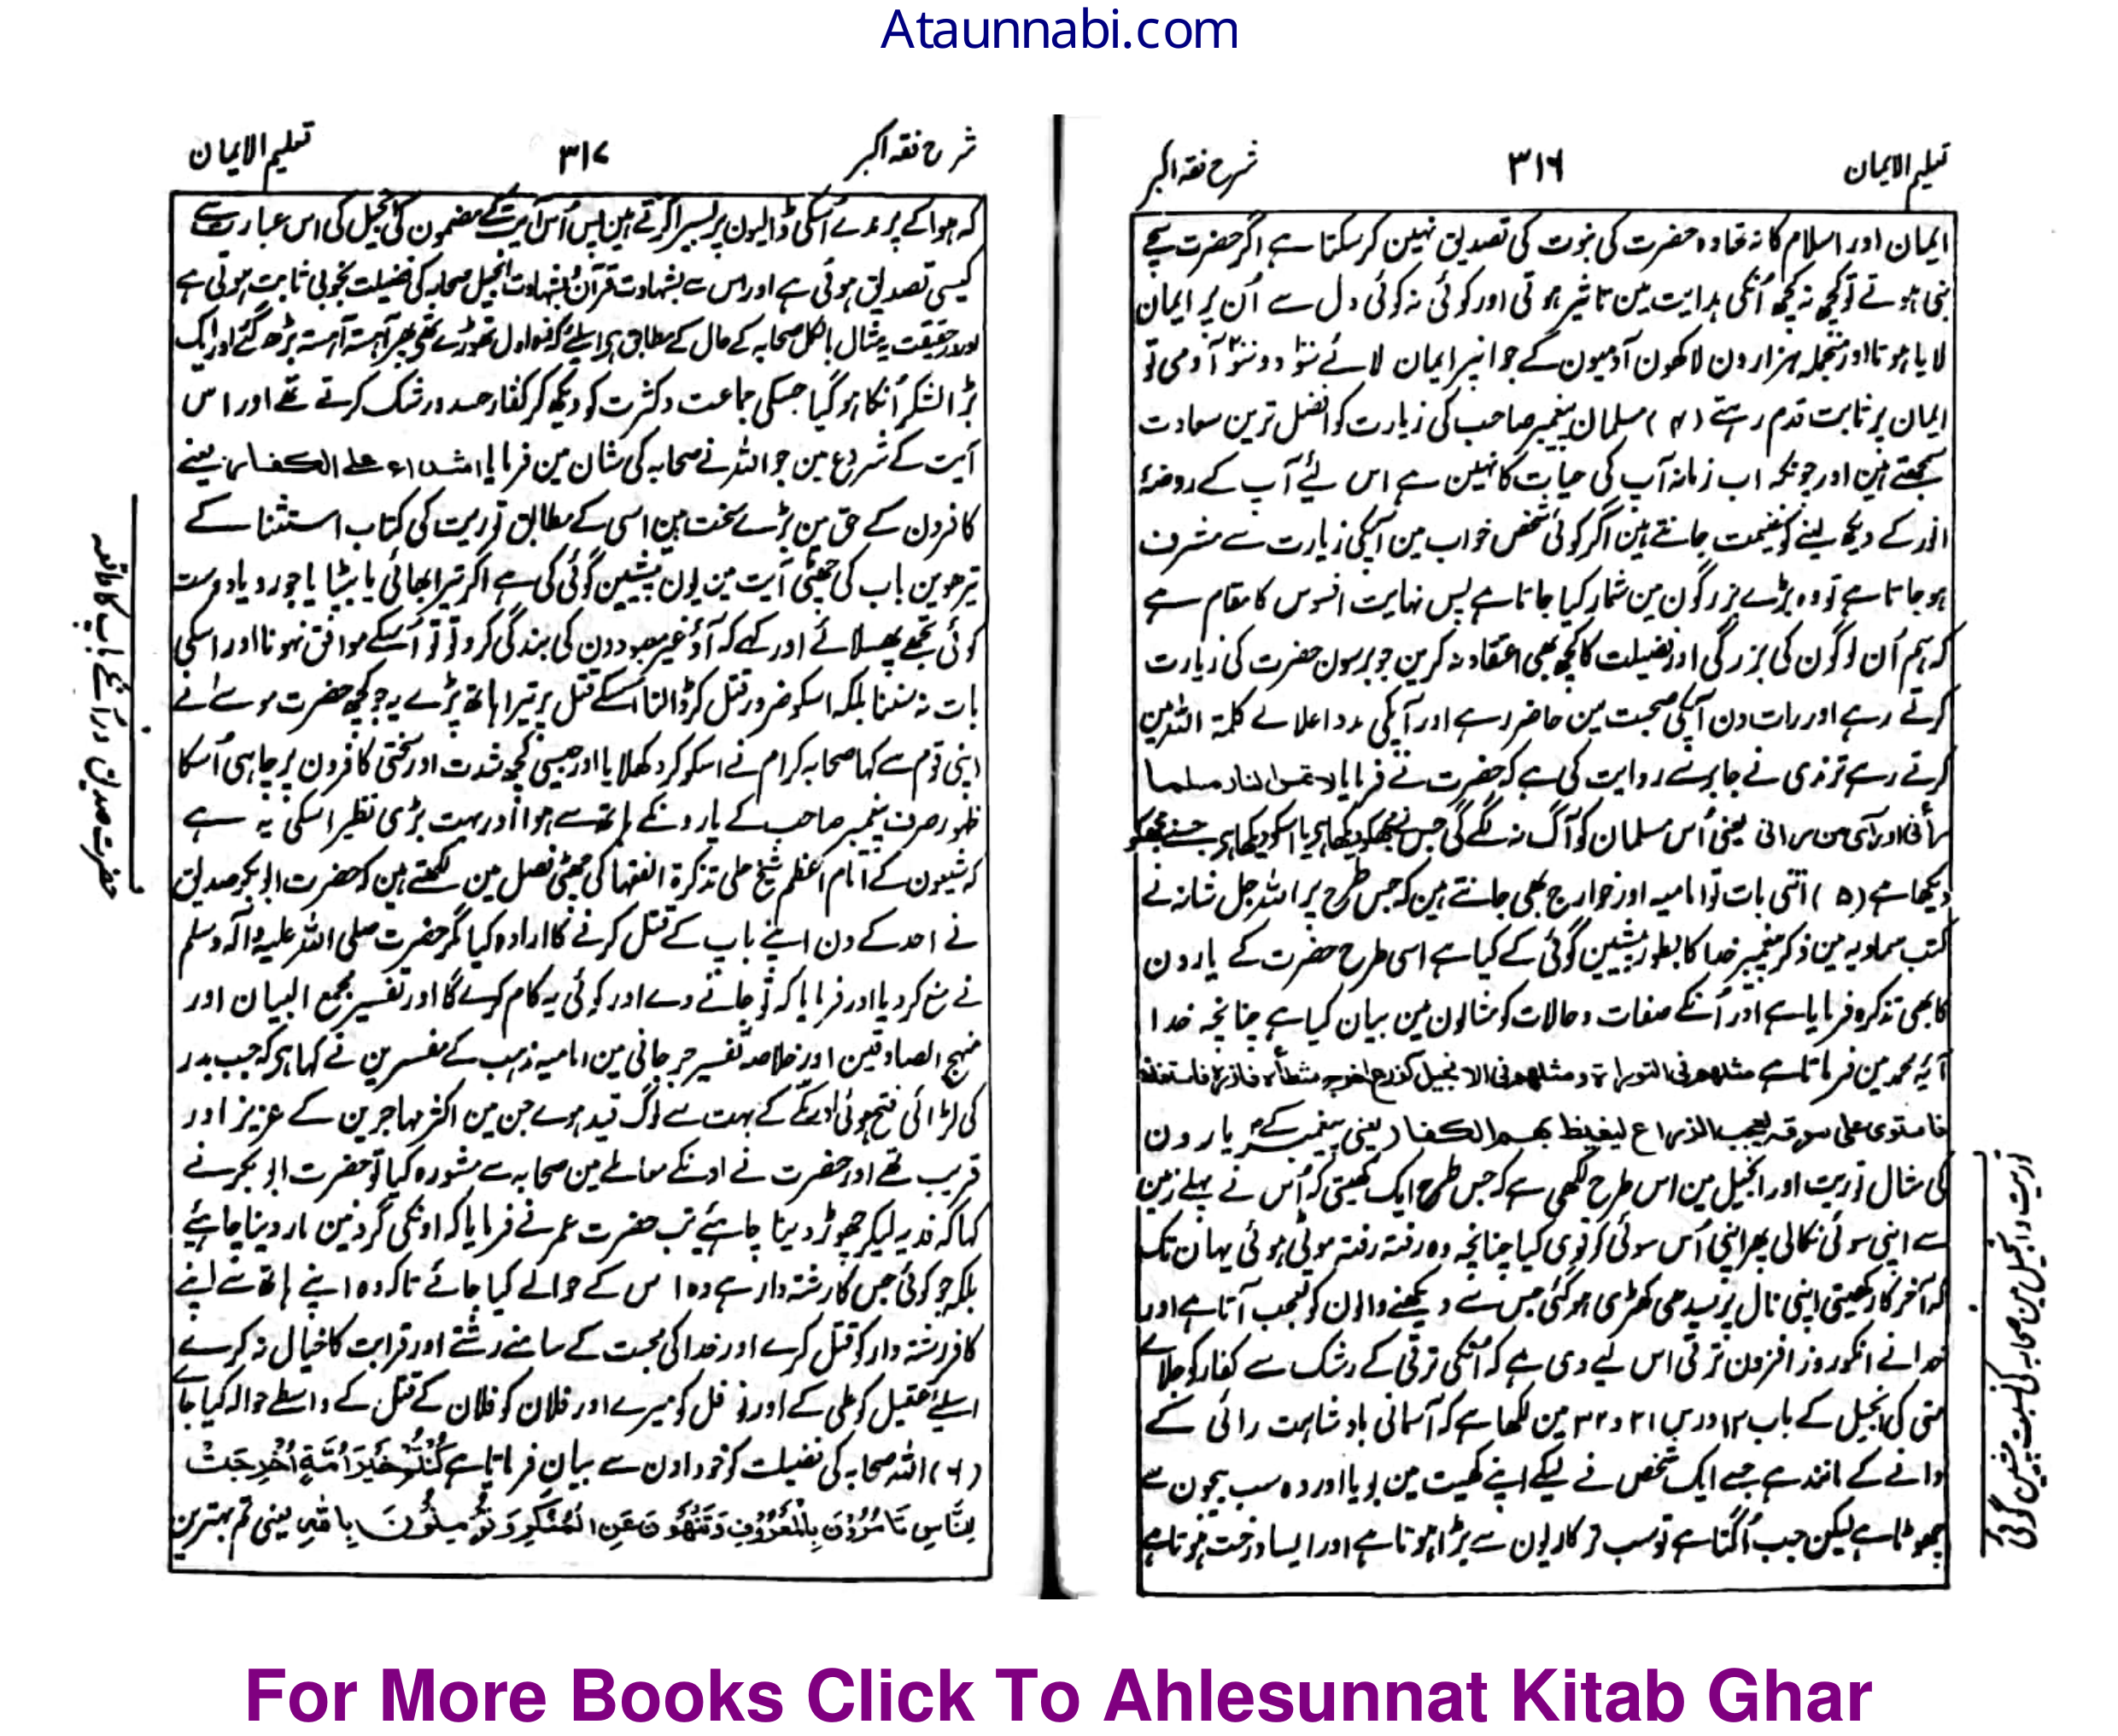 Ataunnabi.com
تعلیم الایمان ۳۱۶ شرح فقہ اکبر
ایمان اور اسلام کا نہ تھا وہ حضرت کی نبوت کی تصدیق نہین کر سکتا ہے اگر حضرت سچے
نبی ہوتے تو کچھ نہ کچھ اُنکی ہدایت مین تاثیر ہوتی اور کوئی نہ کوئی دل سے اُن پر ایمان
لایا ہوتا اور منجملہ ہزارون لاکھون آدمیون کے جو انپر ایمان لائے سَو دو سَو آدمی تو
ایمان پر ثابت قدم رہتے (۴) مسلمان پیغمبر صاحب کی زیارت کو افضل ترین سعادت
سمجھتے ہین اور چونکہ اب زمانہ آپ کی حیات کا نہین ہے اس لیے آپ کے روضۂ
انور کے دیکھ لینے کو غنیمت جانتے ہین اگر کوئی شخص خواب مین آپکی زیارت سے مشرف
ہو جاتا ہے تو وہ بڑے بزرگون مین شمار کیا جاتا ہے پس نہایت افسوس کا مقام ہے
کہ ہم اُن لوگون کی بزرگی اور فضیلت کا کچھ بھی اعتقاد نہ کرین جو برسون حضرت کی زیارت
کرتے رہے اور رات دن آپکی صحبت مین حاضر رہے اور آپکی مدد اعلاے کلمۃ اللہ مین
کرتے رہے ترمذی نے جابر سے روایت کی ہے کہ حضرت نے فرمایا لا تمس النار مسلما
رأنی اور آی من رانی یعنی اُس مسلمان کو آگ نہ لگے گی جس نے مجھکو دیکھا ہی یا اسکو دیکھا ہی جسنے مجھکو
دیکھا ہے (۵) اتنی بات تو امامیہ اور خوارج بھی جانتے ہین کہ جس طرح پر اللہ جل شانہ نے
کتب سماویہ مین ذکر پیغمبر خدا کا بطور پیشین گوئی کے کیا ہے اسی طرح حضرت کے یارون
کا بھی تذکرہ فرمایا ہے اور اُنکے صفات و حالات کو مثالون مین بیان کیا ہے چنانچہ خدا
آیۂ محمد مین فرماتا ہے مثلهم فی التوراة و مثلهم فی الانجیل کزرع اخرج شطأه فازره فاستغلظ
فاستوی علی سوقه یعجب الزراع لیغیظ بهم الکفار یعنی پیغمبر کے یارون
کی مثال توریت اور انجیل مین اس طرح لکھی ہے کہ جس طرح ایک کھیتی کہ اُس نے پہلے زمین
سے اپنی سوئی نکالی پھر اپنی اُس سوئی کو قوی کیا چنانچہ وہ رفتہ رفتہ موٹی ہوئی یہان تک
کہ آخر کار کھیتی اپنی نال پر سیدھی کھڑی ہو گئی جس سے دیکھنے والون کو تعجب آتا ہے اور
خدا نے انکو روز افزون ترقی اس لیے دی ہے کہ اُنکی ترقی کے رشک سے کفار کو جلائے
متی کی انجیل کے باب ۱۳ ورس ۳۱ و ۳۲ مین لکھا ہے کہ آسمانی بادشاہت رائی کے
دانے کے مانند ہے جسے ایک شخص نے لیکے اپنے کھیت مین بویا اور وہ سب بیجون سے
چھوٹا ہے لیکن جب اُگتا ہے تو سب ترکاریون سے بڑا ہوتا ہے اور ایسا درخت ہوتا ہے
توریت و انجیل مین صحابہ کی نسبت پیشین گوئی
شرح فقہ اکبر ۳۱۷ تعلیم الایمان
کہ ہوا کے پرندے اُسکی ڈالیون پر بسیرا کرتے ہین پس اُس آیت کے مضمون کی انجیل کی اس عبارت سے
کیسی تصدیق ہوتی ہے اور اس سے بشہادت قرآن و بشہادت انجیل صحابہ کی فضیلت بخوبی ثابت ہوتی ہے
اور حقیقت یہ مثال بالکل صحابہ کے حال کے مطابق ہی اسلیے کہ وہ اول تھوڑے تھے پھر آہستہ آہستہ بڑھ گئے اور ایک
بڑا لشکر اُنکا ہو گیا جسکی جماعت و کثرت کو دیکھ کر کفار حسد و رشک کرتے تھے اور اس
آیت کے شروع مین جو اللہ نے صحابہ کی شان مین فرمایا اشداء علی الکفار یعنے
کافرون کے حق مین بڑے سخت ہین اسی کے مطابق توریت کی کتاب استثنا کے
تیرھوین باب کی چھٹی آیت مین یون پیشین گوئی کی ہے اگر تیرا بھائی یا بیٹا یا جورو یا دوست
کوئی تجھے پھسلائے اور کہے کہ آؤ غیر معبودون کی بندگی کرو تو تو اُسکے موافق نہونا اور اسکی
بات نہ سننا بلکہ اسکو ضرور قتل کر ڈالنا اُسکے قتل پر تیرا ہاتھ پڑے یہ جو کچھ حضرت موسے نے
اپنی قوم سے کہا صحابہ کرام نے اسکو کر دکھلایا اور جیسی کچھ شدت اور سختی کافرون پر چاہی اُسکا
ظہور صرف پیغمبر صاحب کے یارونکے ہاتھ سے ہوا اور بہت بڑی نظیر اسکی یہ ہے
کہ شیعون کے امام اعظم شیخ حلی تذکرۃ الفقہا کی چھٹی فصل مین لکھتے ہین کہ حضرت ابو بکر صدیق
نے احد کے دن اپنے باپ کے قتل کرنے کا ارادہ کیا مگر حضرت صلی اللہ علیہ وآلہ وسلم
نے منع کر دیا اور فرمایا کہ تو جانے دے اور کوئی یہ کام کرے گا اور تفسیر مجمع البیان اور
منہج الصادقین اور خلاصہ تفسیر جرجانی مین امامیہ مذہب کے مفسرین نے کہا ہی کہ جب بدر
کی لڑائی فتح ہوئی اور مکے کے بہت سے لوگ قید ہوے جن مین اکثر مہاجرین کے عزیز اور
قریب تھے اور حضرت نے اونکے معاملے مین صحابہ سے مشورہ کیا تو حضرت ابو بکر نے
کہا کہ فدیہ لیکر چھوڑ دینا چاہیے تب حضرت عمر نے فرمایا کہ اونکی گردنین مار دینا چاہیے
بلکہ جو کوئی جس کا رشتہ دار ہے وہ اس کے حوالے کیا جائے تاکہ وہ اپنے ہاتھ سے اپنے
کافر رشتہ دار کو قتل کرے اور خدا کی محبت کے سامنے رشتے اور قرابت کا خیال نہ کرے
اسلیے عقیل کو علی کے اور نوفل کو میرے اور فلان کو فلان کے قتل کے واسطے حوالہ کیا جائے
(۶) اللہ صحابہ کی فضیلت کو خود اون سے بیان فرماتا ہے كُنْتُمْ خَيْرَ اُمَّةٍ اُخْرِجَتْ
لِلنَّاسِ تَامُرُوْنَ بِالْمَعْرُوْفِ وَتَنْهَوْنَ عَنِ الْمُنْكَرِ وَتُؤْمِنُوْنَ بِاللّٰهِ یعنی تم بہترین
حضرت صدیق اور اُنکے باپ کا واقعہ
For More Books Click To Ahlesunnat Kitab Ghar